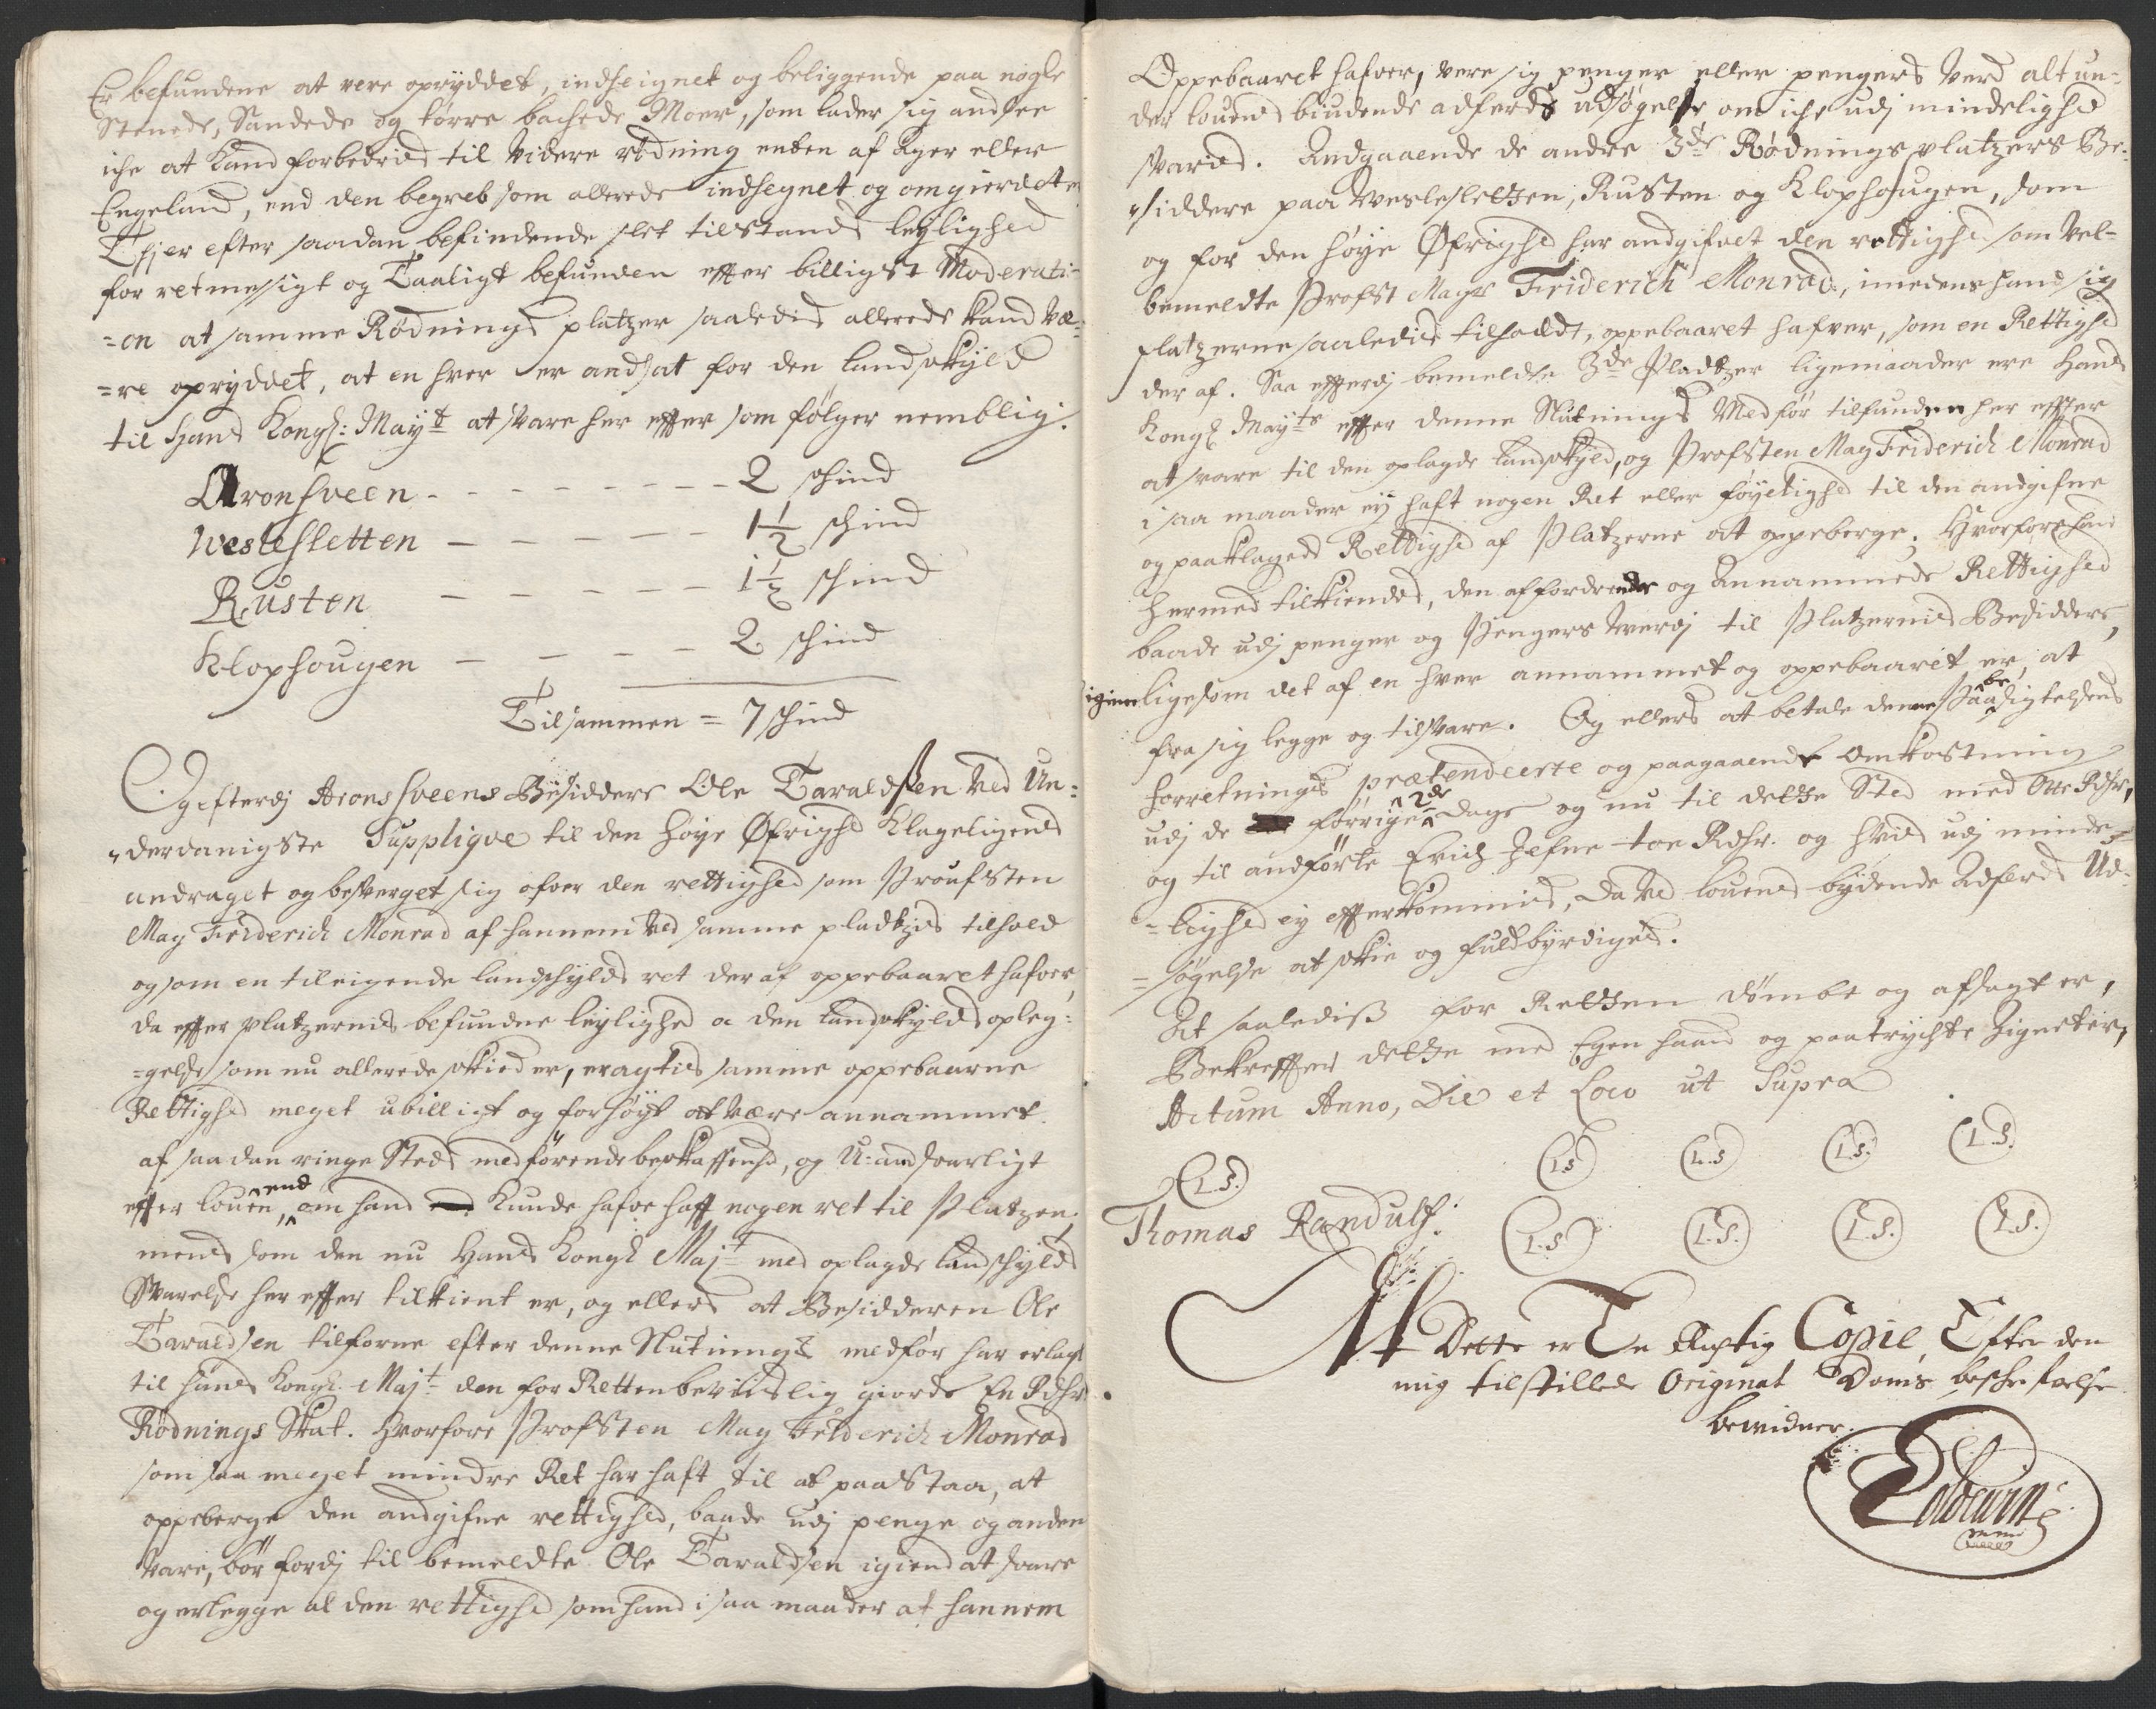 Er befundene at vere opryddet, indheignet og beliggende paa nogle
Stenede, Sandede og tørre bachede Moer, som lader sig andsee
iche at kand forbedris til videre rødning enten af Ager eller
Engeland, end den begreb som allerede indhegnet og omgierdet er
Thj er efter saadan befindende slet tilstands leylighed
for retmessigt og Taaligt befunden effter billigst Moderati-
=on at samme Rødnings platzer saaledis allerede kand væ-
=re opryddet, at en hver er andsat for den landskyld
til Hans Kongl: Mayt at svare her effter som følger nemblig.
Aronsveen - - - - - - - - 2 schind
Weslesletten - - - - - 1½ schind
Rusten - - - - - 1½ schind
Klophougen - - - - 2 schind
Tilsammen = 7 schind
Og efterdj Aronssveens Besiddere Ole Taraldssen ved Un-
derdanigste Suppliqve til den høye Øfrighed Klageligens
andraget og besverget sig ofver den rettighed som Proufsten
Mag Friderich Monrad af hannem ved samme pladtzis tilhold
og som en tileigende landschylds ret der af oppebaaret hafver,
da effter platzernis befundne leylighed a den landskylds opleg-
=gelse som nu allerede skied er, eragtis samme oppebaarne
Rettighed meget ubilligt og forhøyt at være annammet
af saadan ringe Steds medførende beskaffenhed, og U-andsvarligt
effter louen, end om hand kunde hafve hafft nogen ret til Platzen
mens som den nu Hans Kongl Majt med oplagde landschylds
Svarelse her effter tilkient er, og ellers at Besidderen Ole
Taraldsen tilforne efter denne Slutnings medfør har erlagt
til Hans Kongl. Majt den for Retten bevislig giorde En Rdlr
Rødnings Skat. Hvorfore Profsten Mag Friderich Monrad
som saa meget mindre Ret har haft til at paastaa, at
oppeberge den andgifne rettighed, baade udj penge og anden
vare, bør fordj til bemeldte Ole Taraldsen igiend at svare
og erlegge al den rettighed som hand i saa maader af hannem
Oppebaaret hafver, vere sig penger eller pengers verd alt un-
der louens biudende adferds udsøgelse om iche udj mindelighed
svaris. Andgaaende de andre 3de Rødningsplatzers Be-
siddere paa Weslesletten, Rusten og Klophougen, som
og for den høye Øfrighed har andgifvet den rettighed som vel-
bemeldte Profst Magr Friderich Monrad, imedens hand sig
platzerne saaledis tilholdt, oppebaaret hafver, som en Rettighed
der af. Saa effterdj bemeldte 3de Pladtzer ligemaader ere Hans
Kongl Mayts effter denne Slutnings Medfør tilfunden her effter
at svare til den oplagde landskyld, og Profsten Mag Friderich Monrad
i saa maader ey haft nogen Ret eller føyelighed til den andgifne
og paaklagede Rettighed af Platzerne at oppeberge. Hvorfore hand
hermed tilkiendes, den affordrende og Annammede Rettighed
baade udj penger og Pengers Werdj til Platzernis Besiddere,
igien ligesom det af en hver annammet og oppebaaret er, at
fra sig legge og tilsvare. Og ellers at betale denne Paabesigtelsens
Forretnings prætendeerte og paagaaende omkostning
udj de forrige 2de dage og nu til dette Sted med Otte Rdlr,
og til andførte Erich Jefne toe Rdlr. og hvis udj minde-
=lighed ey effterkommis, da ved louens bydende Adferds Ud-
=søgelse at skie og fuldbyrdiges.
At saalediss for Retten dømbt og afsagt er,
Bekreffter dette med Egen haand og paatrychte Zigneter,
Actum Anno, Die et Loco ut Supra
(L.S.) (L.S) (L.S) (L.S.) (L.S.)
Thomas Randulf. (L.S) (L.S.) (L.S.) (L.S.)
At Dette er En Rigtig Copie, Efter den
mig tilstillede Original Doms beskrifvelse
bewidner.